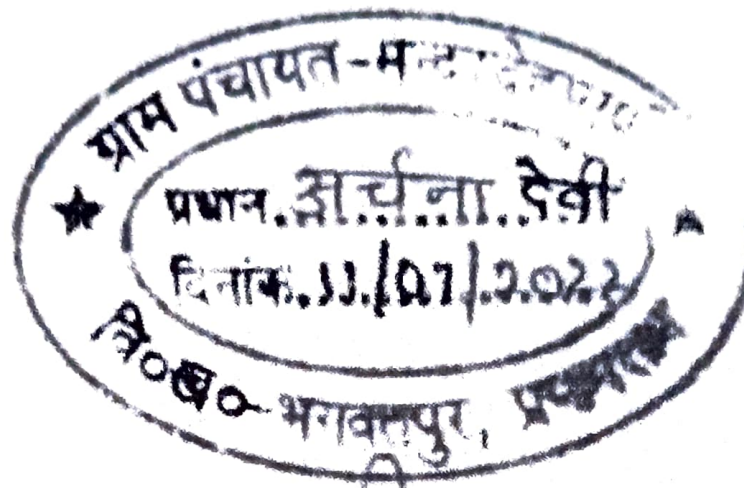 ग्राम पंचायत-
प्रधान. अर्चना देवी
दिनांक. 11/07/2022
वि०ख०-भगवतपुर, प्रयागराज